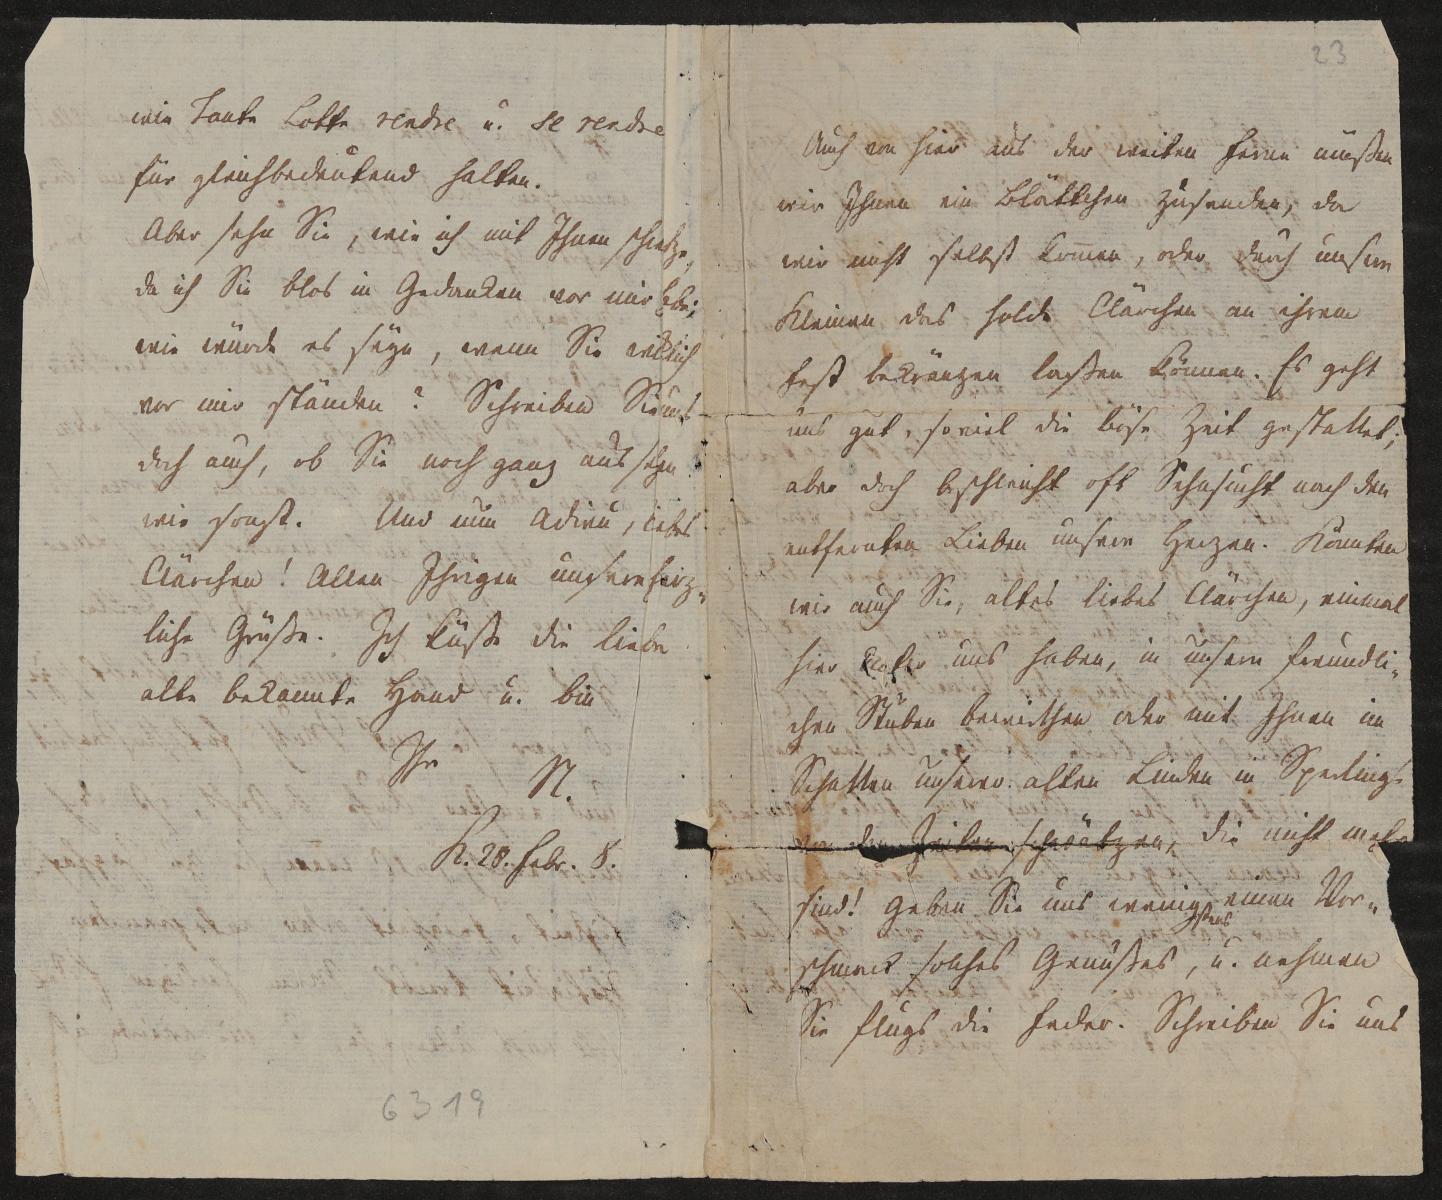 23
Auch von hier aus der weiten Ferne müßen
wir Ihnen ein Blättchen zusenden, da
wir nicht selbst kom̅en, oder durch unsern
Kleinen das holde Clärchen an ihrem
Fest bekränzen laßen können. Es geht
uns gut, soviel die böse Zeit gestattet;
aber doch beschleicht oft Sehnsucht nach den
entfernten Lieben unsere Herzen. Könnten
wir auch Sie, altes liebes Clärchen, einmal
hier unter uns haben, in unsern freundli-
chen Stuben bewirthen oder mit Ihnen im
Schatten unserer alten Linden in Sperlings
von den Zeiten schwätzen, die nicht mehr
sind! Geben Sie uns wenigstens einen Vor-
schmack solches Genußes, u. nehmen
Sie flugs die Feder. Schreiben Sie uns
wie Tante Lotte rendre u. se rendre
für gleichbedeutend halten.
Aber sehn Sie, wie ich mit Ihnen scherze,
da ich Sie blos in Gedanken vor mir habe;
wie würde es seyn, wenn Sie wirklich
vor mir ständen? Schreiben Sie uns
doch auch, ob Sie noch ganz aussehen
wie sonst. Und nun Adieu, liebes
Clärchen! Allen Ihrigen unsere herz-
liche Grüße. Ich küße die liebe
alte bekannte Hand u. bin
Ihr N.
K. 28. Febr. 8.
6319